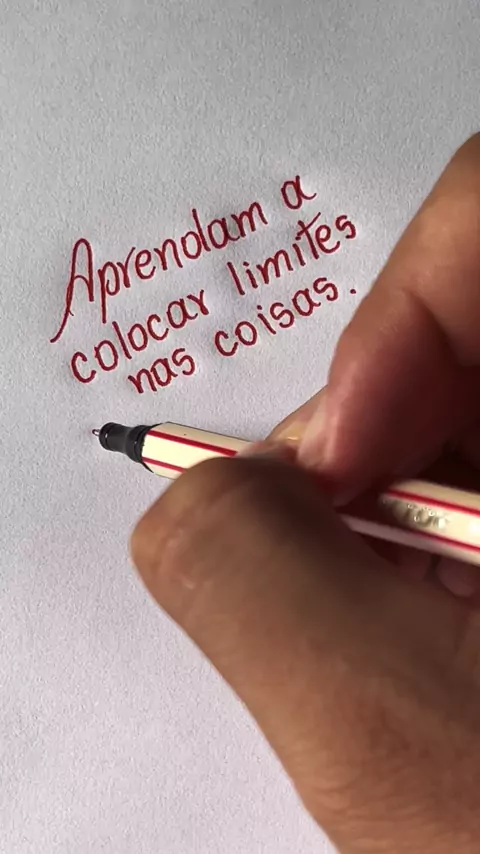 Aprendam a
colocar limites
nas coisas.